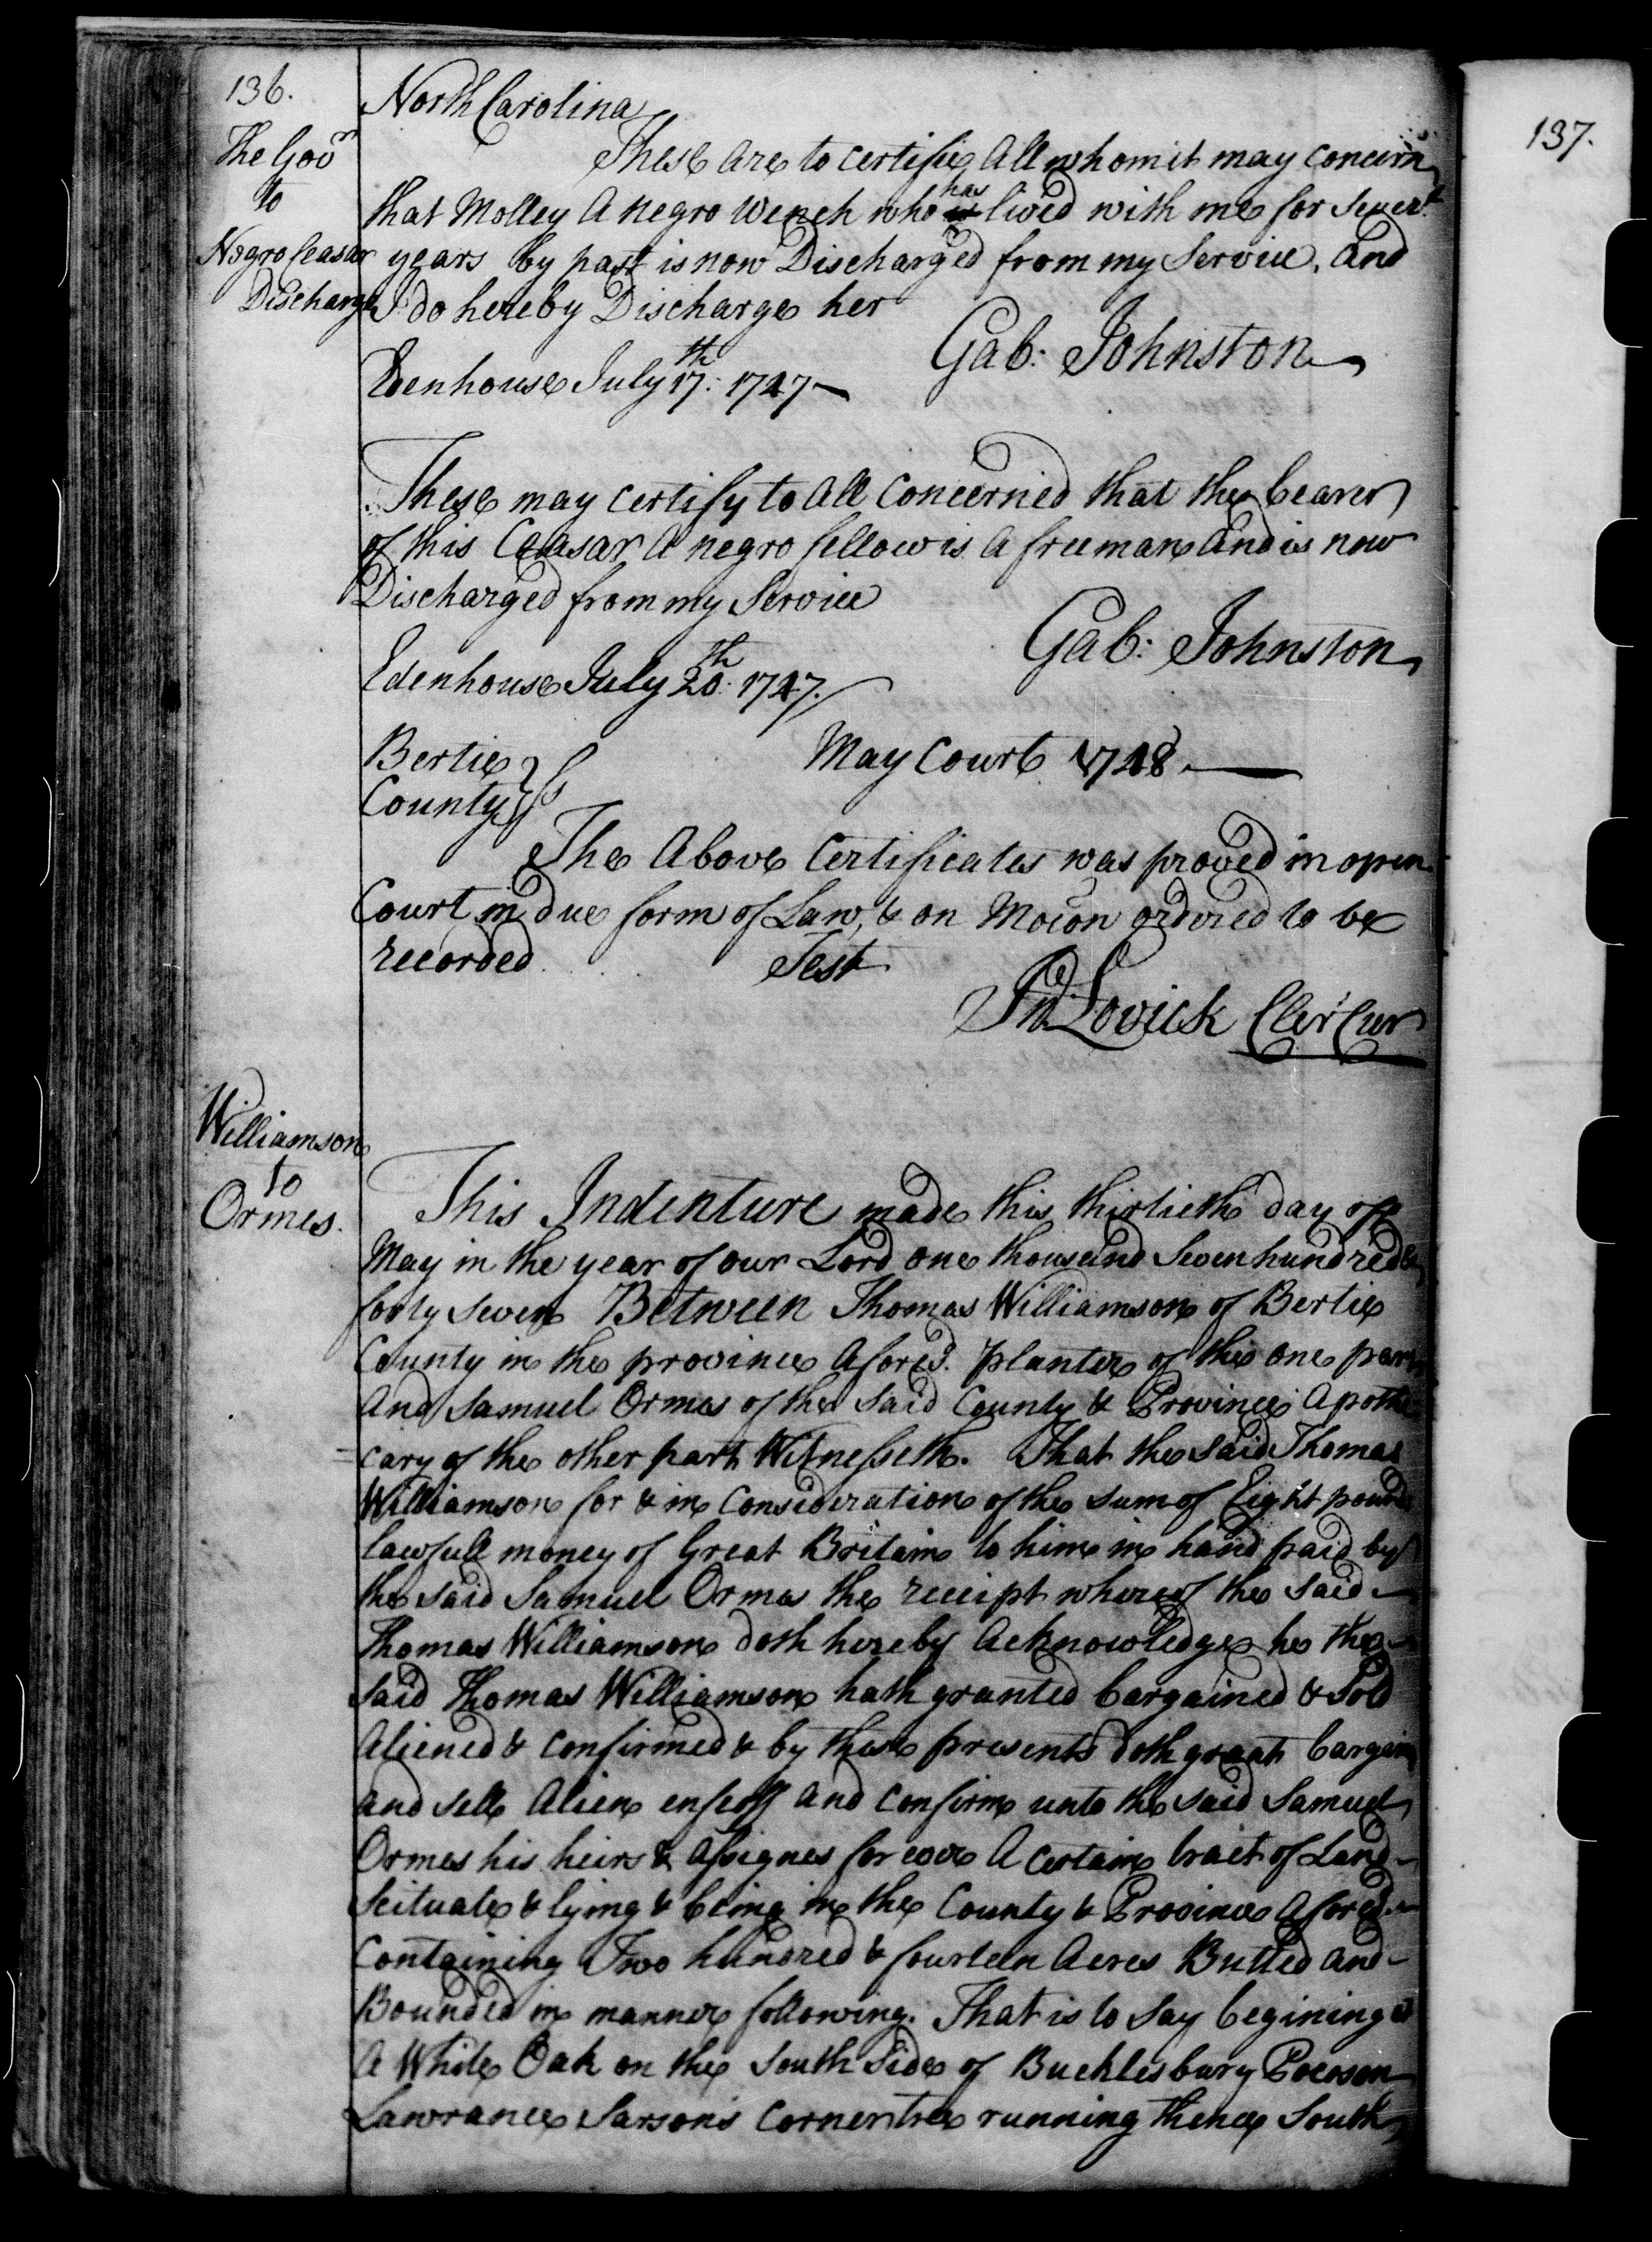 136.
The Govr
to
Negro Ceasar
Discharge
North Carolina
These are to certifie all whom it may concern
that Molley a negro Wench who has lived with me for Severl
years by past is now Discharged from my Service. and
I do hereby Discharge her
Gab: Johnston
Edenhouse July 17th: 1747
These may certify to all concerned that the bearer
of this Ceasar a negro fellow is a freeman and is now
Discharged from my Service
Gab: Johnston
Edenhouse July 20th: 1747.
Bertie
County Ss
May Court 1748
The above Certificates was proved in open
Court in due form of Law, & on Mocon ordered to be
recorded. Test
Jno. Lovick Cler Cur
Williamson
to
Ormes.
This Indenture made this thirtieth day of
May in the year of our Lord one thousand Seven hundred &
forty seven Between Thomas Williamson of Bertie
County in the province aforesd. planter of the one part
and Samuel Ormes of the said County & Province Apothe
=cary of the other part Witnesseth. That the said Thomas
Williamson for & in Consideration of the sum of Eight pounds
lawfull money of Great Britain to him in hand paid by
the said Samuel Ormes the receipt whereof the said
Thomas Williamson doth hereby acknowledge he the
said Thomas Williamson hath granted bargained & Sold
aliened & confirmed & by these presents doth grant bargain
and sell alien enfeoff and confirm unto the said Samuel
Ormes his heirs & assignes for ever a certain tract of Land
Scituate & lying & being in the County & Province aforesd.
Containing Two hundred & fourteen Acres Butted and
Bounded in manner following. That is to say begining at
a White Oak on the South side of Bucklesbury Pocoson
Lawrance Sarson's corner tree running thence South
137.